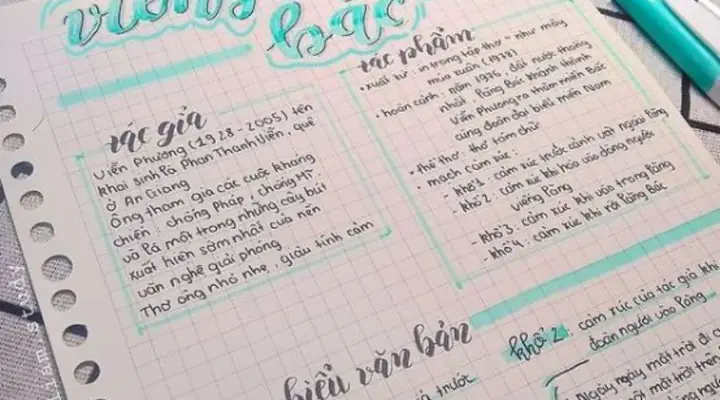 viếng
bác
tác giả
Viễn Phương (1928 - 2005) tên
khai sinh là Phan Thanh Viễn, quê
ở An Giang
Ông tham gia các cuộc kháng
chiến : chống Pháp, chống MT
và là một trong những cây bút
xuất hiện sớm nhất của nền
văn nghệ giải phóng
Thơ ông nhỏ nhẹ, giàu tình cảm
tác phẩm
• xuất xứ : in trong tập thơ " như mây
mùa xuân (1978)
• hoàn cảnh : năm 1976, đất nước thống
nhất, lăng Bác khánh thành
Viễn Phương ra thăm miền Bắc
cùng đoàn đại biểu miền Nam
• thể thơ : thơ tám chữ
• mạch cảm xúc :
- khổ 1 : cảm xúc trước cảnh vật ngoài lăng
- khổ 2 : cảm xúc khi hòa vào dòng người
viếng lăng
- khổ 3 : cảm xúc khi vào trong lăng
- khổ 4 : cảm xúc khi rời lăng Bác
hiểu văn bản
trước
khổ 2 : cảm xúc của tác giả khi
đoàn người vào lăng
Ngày ngày mặt trời đi
một mặt trời trên